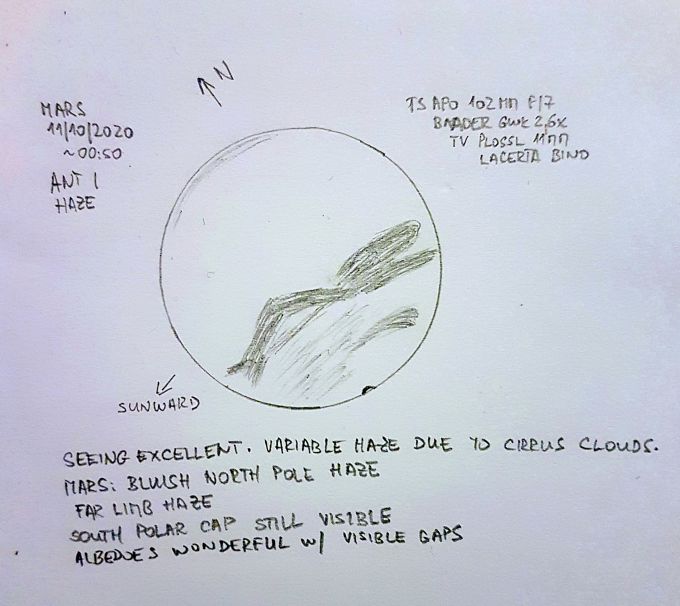 N
MARS
11/10/2020
~00:50
ANT I
HAZE
TS APO 102MM F/7
BAADER GWK 2,6X
TV PLOSSL 11MM
LACERTA BINO
SUNWARD
SEEING EXCELLENT. VARIABLE HAZE DUE TO CIRRUS CLOUDS.
MARS: BLUISH NORTH POLE HAZE
FAR LIMB HAZE
SOUTH POLAR CAP STILL VISIBLE
ALBEDOES WONDERFUL W/ VISIBLE GAPS